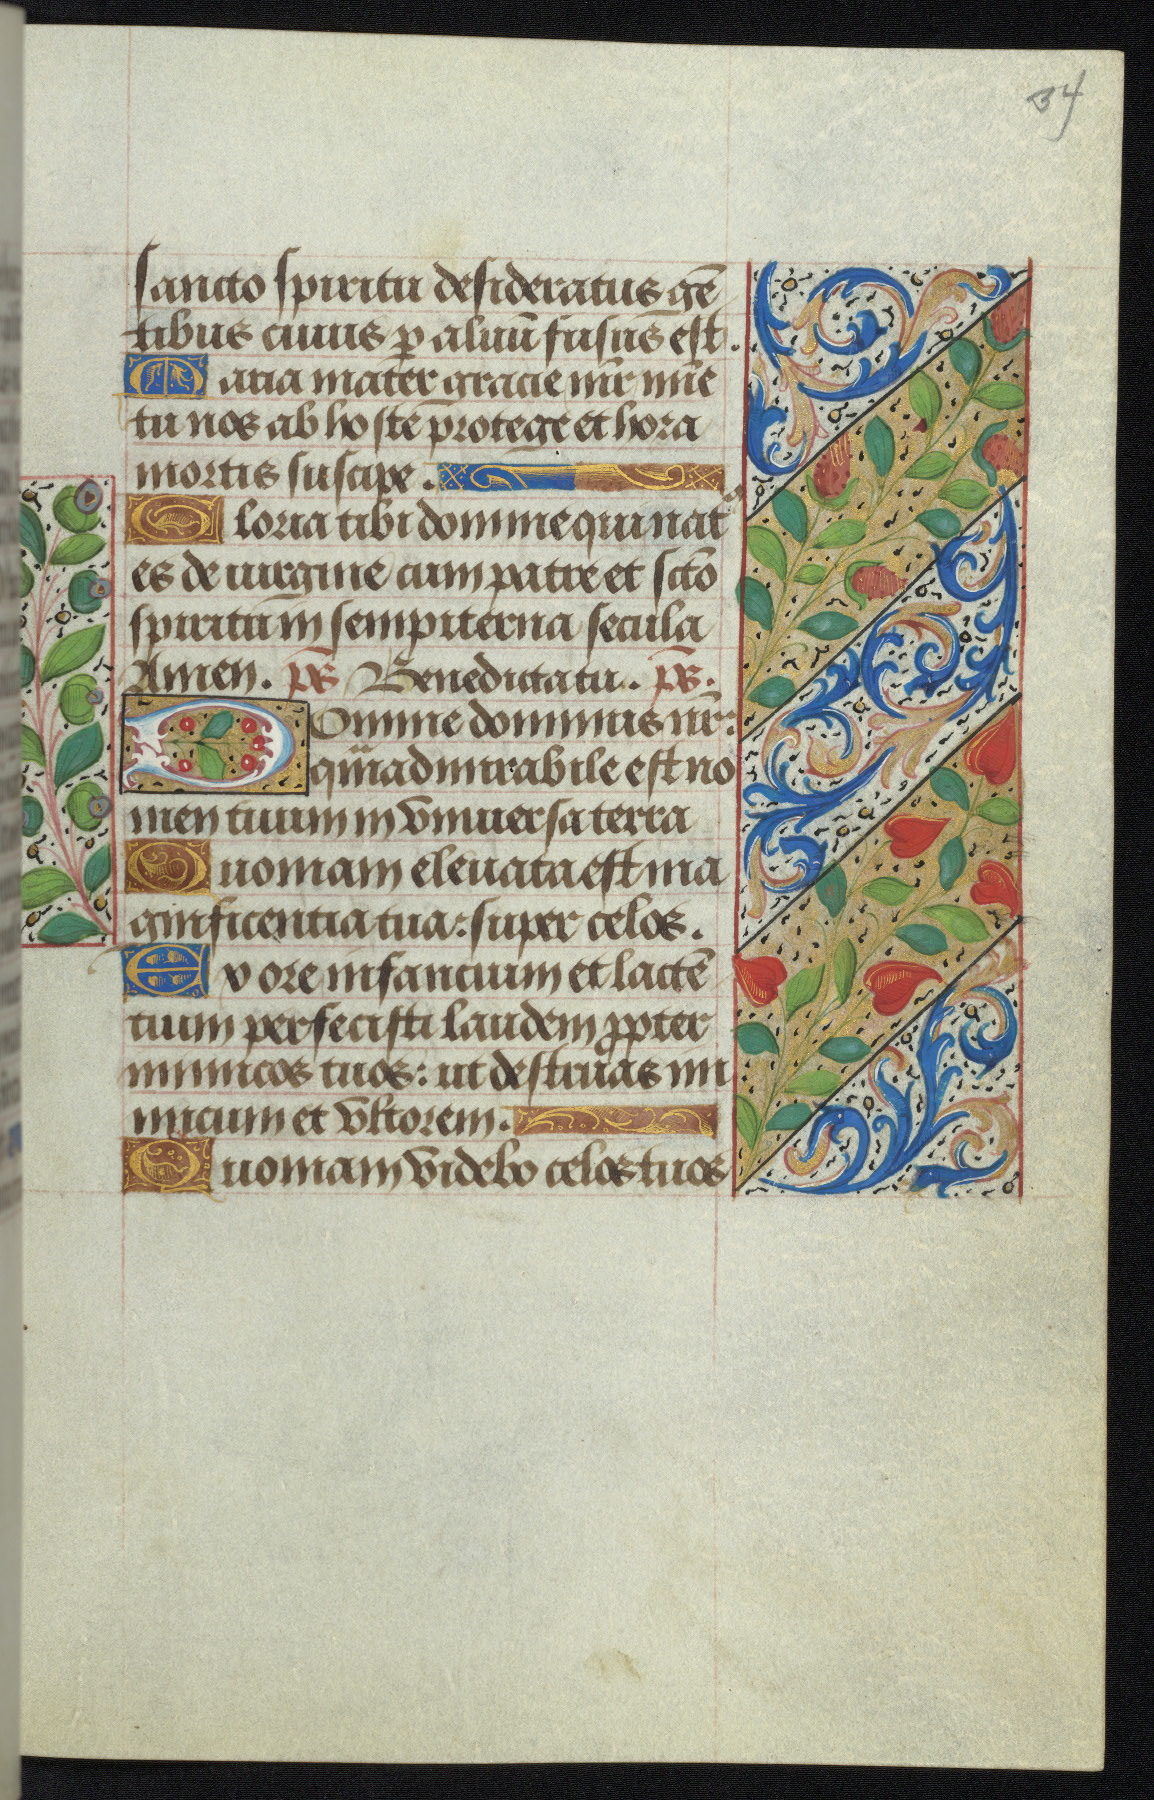 34
sancto spiritu desideratus gē
tibus cuius ꝑ aluū fusus est.
Maria mater gracie mr̄ mie
tu nos ab hoste protege et hora
mortis suscipe.
Gloria tibi domine qui nat
es de uirgine cum patre et scto
spiritu in sempiterna secula
Amen. ps Benedicta tu. ps.
Domine dominus nr̄:
qm̄ admirabile est no
men tuum in vniuersa terra
Quoniam eleuata est ma
gnificentia tua: super celos.
Ex ore infancium et lactē
tium perfecisti laudem ꝓpter
inimicos tuos: ut destruas ini
micum et vltorem.
Quoniam videbo celos tuos